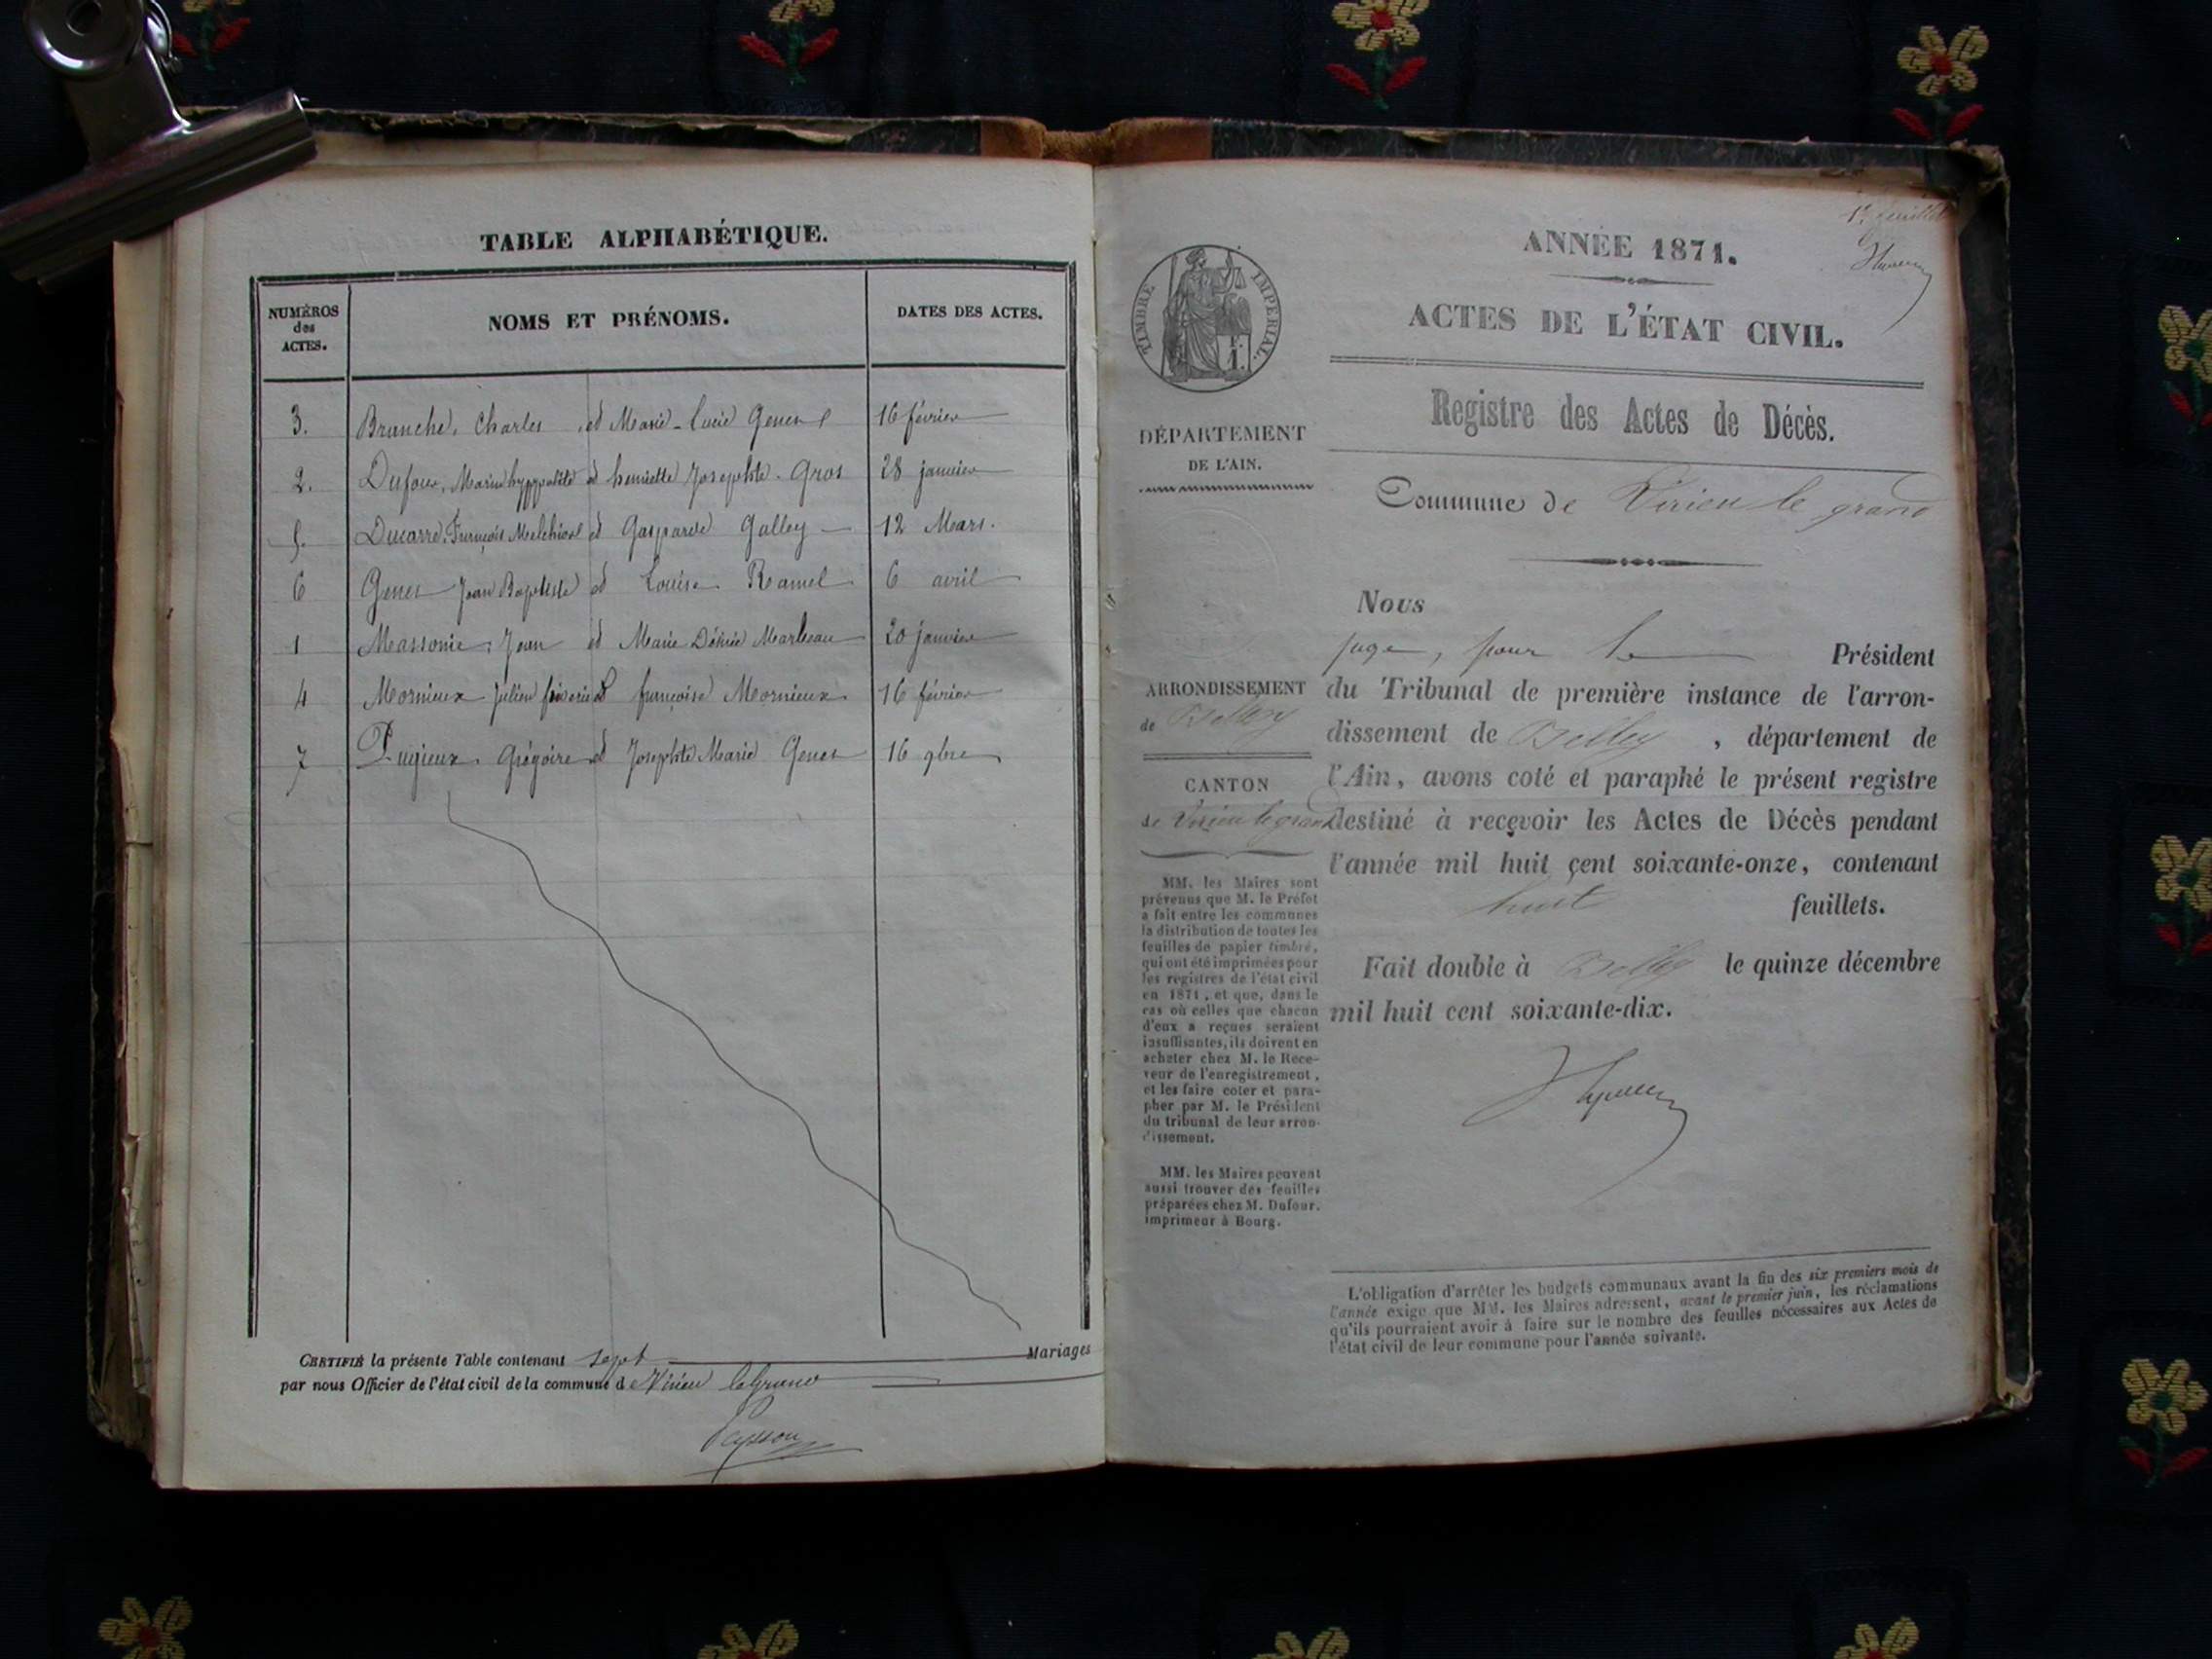 TABLE ALPHABÉTIQUE.
NUMÉROS des ACTES. NOMS ET PRÉNOMS. DATES DES ACTES.
3. Brunche, Charles et Marie-Lucie Genet 16 février
2. Dufour, Marie hyppolite et henriette Josephte Gros 28 janvier
5. Ducarre, François Melchior et Gasparde Galley 12 Mars.
6 Genet Jean Baptiste et Louise Ramel 6 avril
1 Massonie, Jean et Marie Désirée Marleau 20 janvier
4 Mornieux Julien et françoise Mornieux 16 février
7 Pugieux Grégoire et Josephte Marie Genet 16 9bre
CERTIFIÉ la présente Table contenant sept Mariages
par nous Officier de l'état civil de la commune d Virieu le Grand
Peysson
1er feuillet
ANNÉE 1871.
ACTES DE L'ÉTAT CIVIL.
Registre des Actes de Décès.
Commune de Virieu le grand
TIMBRE IMPÉRIAL.
DÉPARTEMENT
DE L'AIN.
ARRONDISSEMENT
de Belley
CANTON
de Virieu le grand
MM. les Maires sont
prévenus que M. le Préfet
a fait entre les communes
la distribution de toutes les
feuilles de papier timbré,
qui ont été imprimées pour
les registres de l'état civil
en 1871, et que, dans le
cas où celles que chacun
d'eux a reçues seraient
insuffisantes, ils doivent en
acheter chez M. le Rece-
veur de l'enregistrement,
et les faire coter et para-
pher par M. le Président
du tribunal de leur arron-
dissement.
MM. les Maires peuvent
aussi trouver des feuilles
préparées chez M. Dufour,
imprimeur à Bourg.
Nous
juge, pour le Président
du Tribunal de première instance de l'arron-
dissement de Belley, département de
l'Ain, avons coté et paraphé le présent registre
destiné à recevoir les Actes de Décès pendant
l'année mil huit cent soixante-onze, contenant
huit feuillets.
Fait double à Belley le quinze décembre
mil huit cent soixante-dix.
L'obligation d'arrêter les budgets communaux avant la fin des six premiers mois de
l'année exige que MM. les Maires adressent, avant le premier juin, les réclamations
qu'ils pourraient avoir à faire sur le nombre des feuilles nécessaires aux Actes de
l'état civil de leur commune pour l'année suivante.